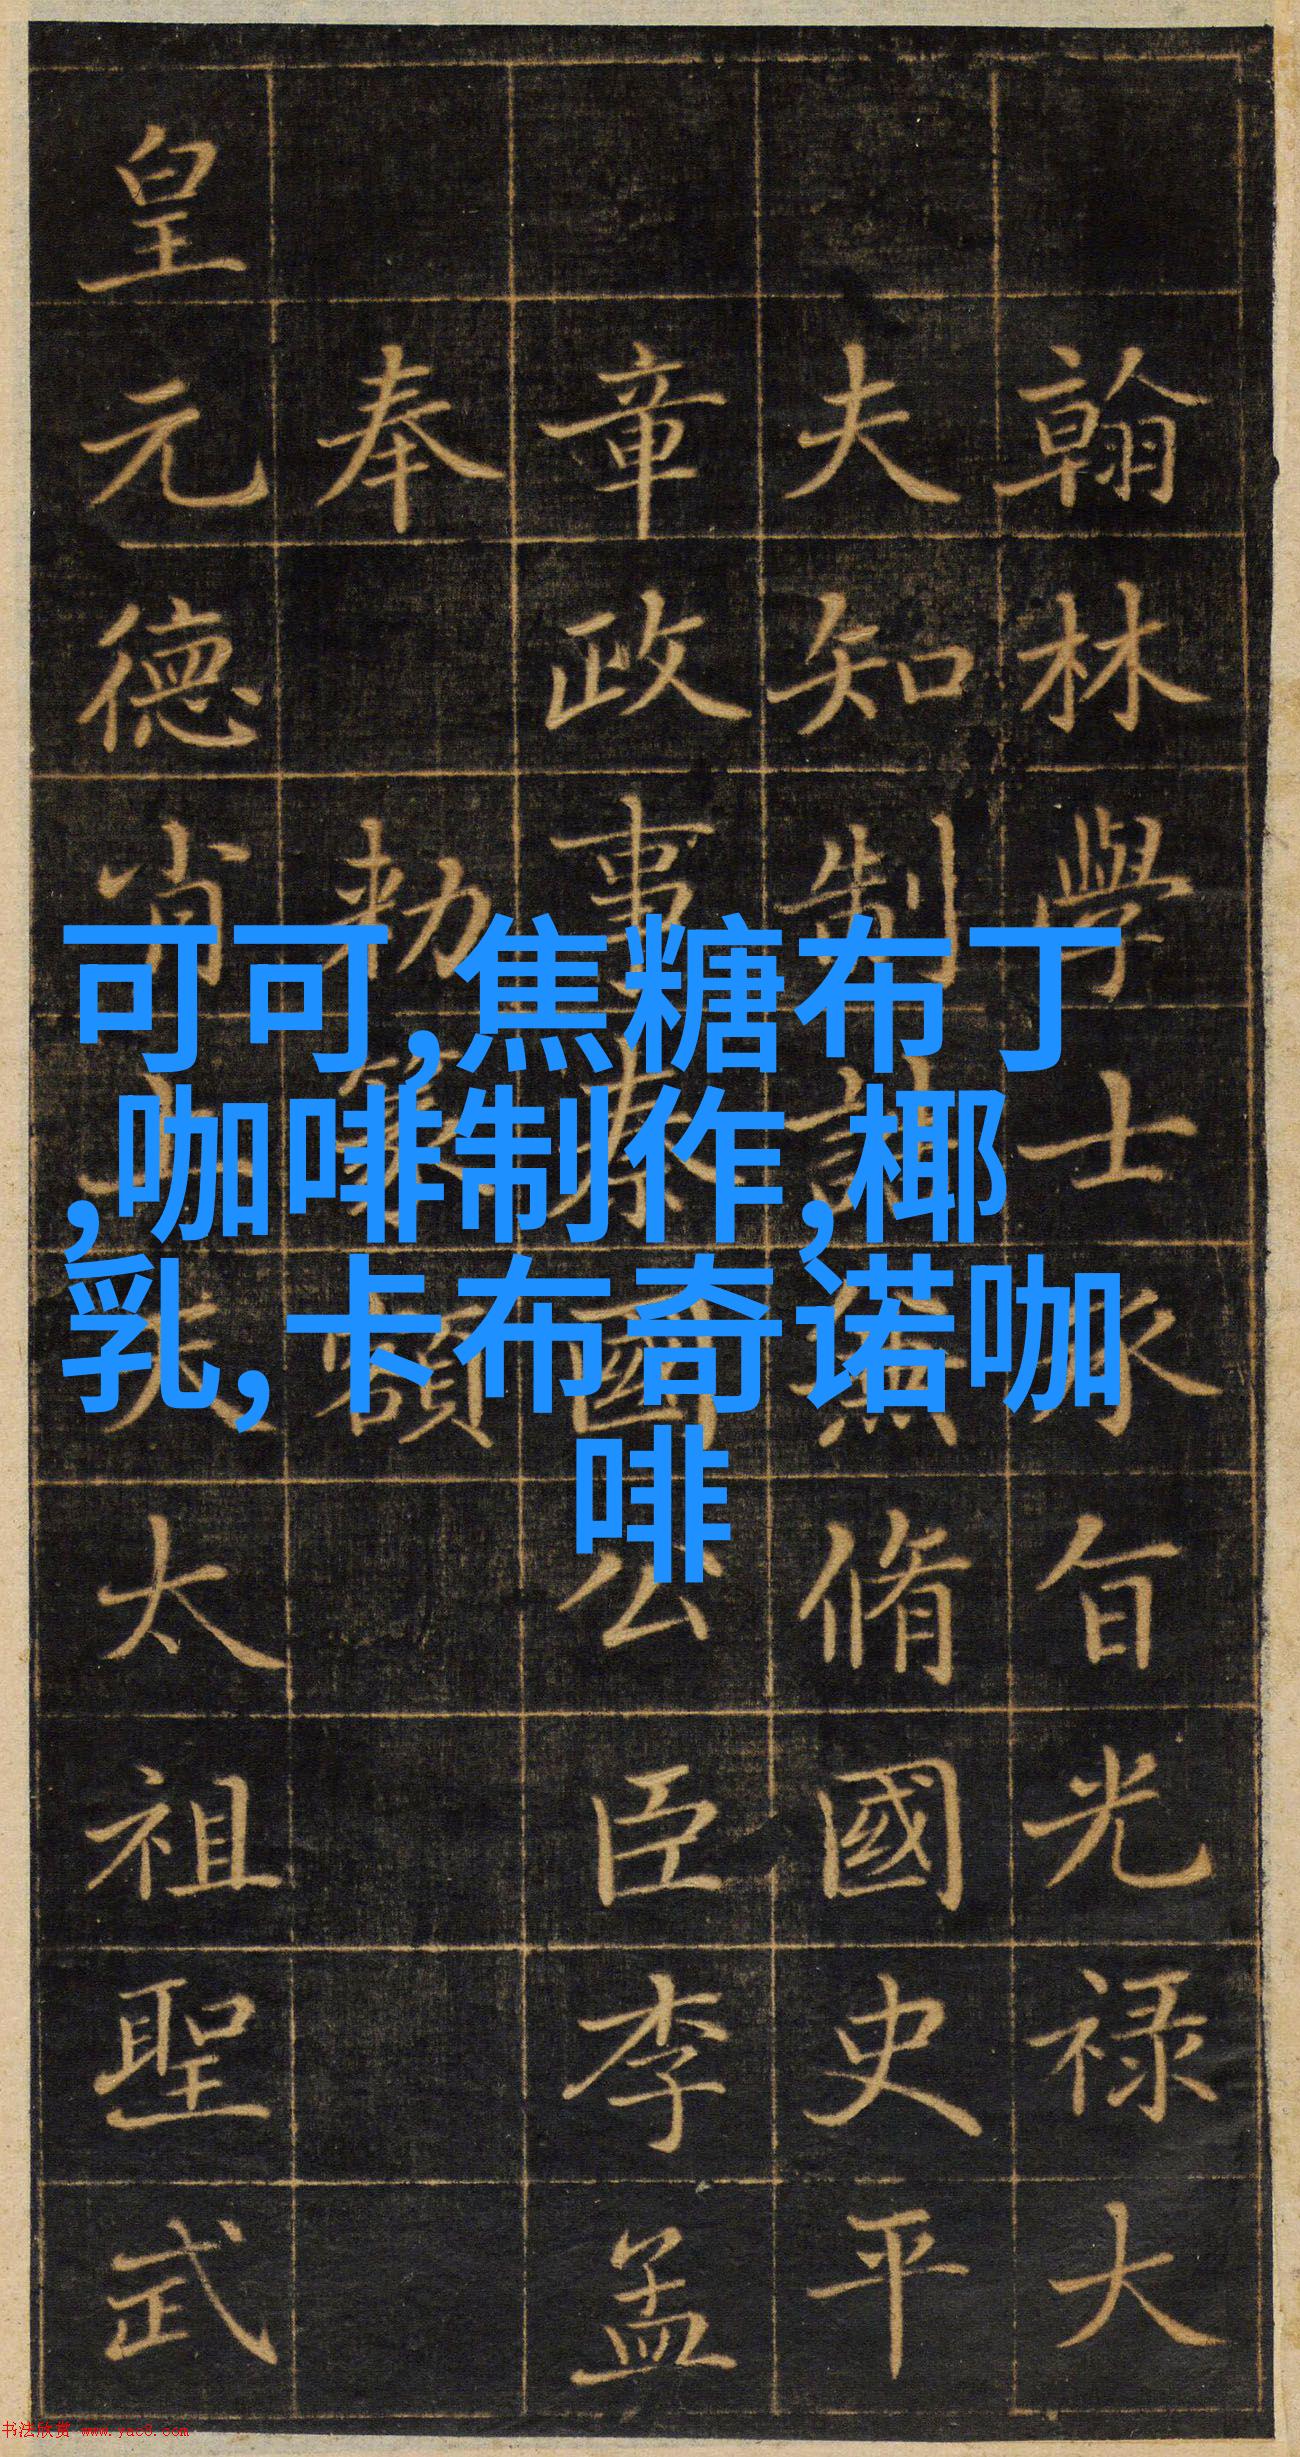 翰林學士承旨光禄大
夫知制誥兼脩國史平
章政事秦國公臣李孟
奉勅篆額
皇元德肖太祖聖武
可可,焦糖布丁
,咖啡制作,椰
乳, 卡布奇诺咖
啡
书法欣赏 www.yac8.com